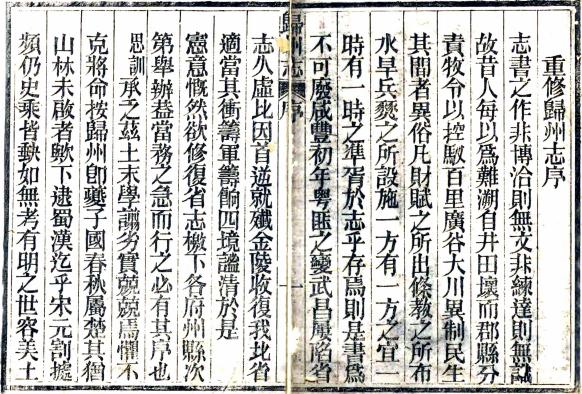 重修歸州志序
志書之作非博洽則無文非練達則無識
故昔人每以爲難溯自井田壞而郡縣分
責牧令以控馭百里廣谷大川異制民生
其間者異俗凡財賦之所出條教之所布
水旱兵燹之所設施一方有一方之宜一
時有一時之準胥於志乎存焉則是書爲
不可廢咸豐初年粵匪之變武昌屢陷省
歸州志 序 一
志久虛比因首逆就殲金陵收復我北省
適當其衝籌軍籌餉四境謐清於是
憲意慨然欲修復省志檄下各府州縣次
第舉辦葢當務之急而行之必有其序也
思訓承乏茲土末學譾劣實兢兢焉懼不
克將命按歸州卽夔子國春秋屬楚其僻
山林未啟者歟下逮蜀漢迄乎宋元割據
頻仍史乘皆缺如無考有明之世容美土